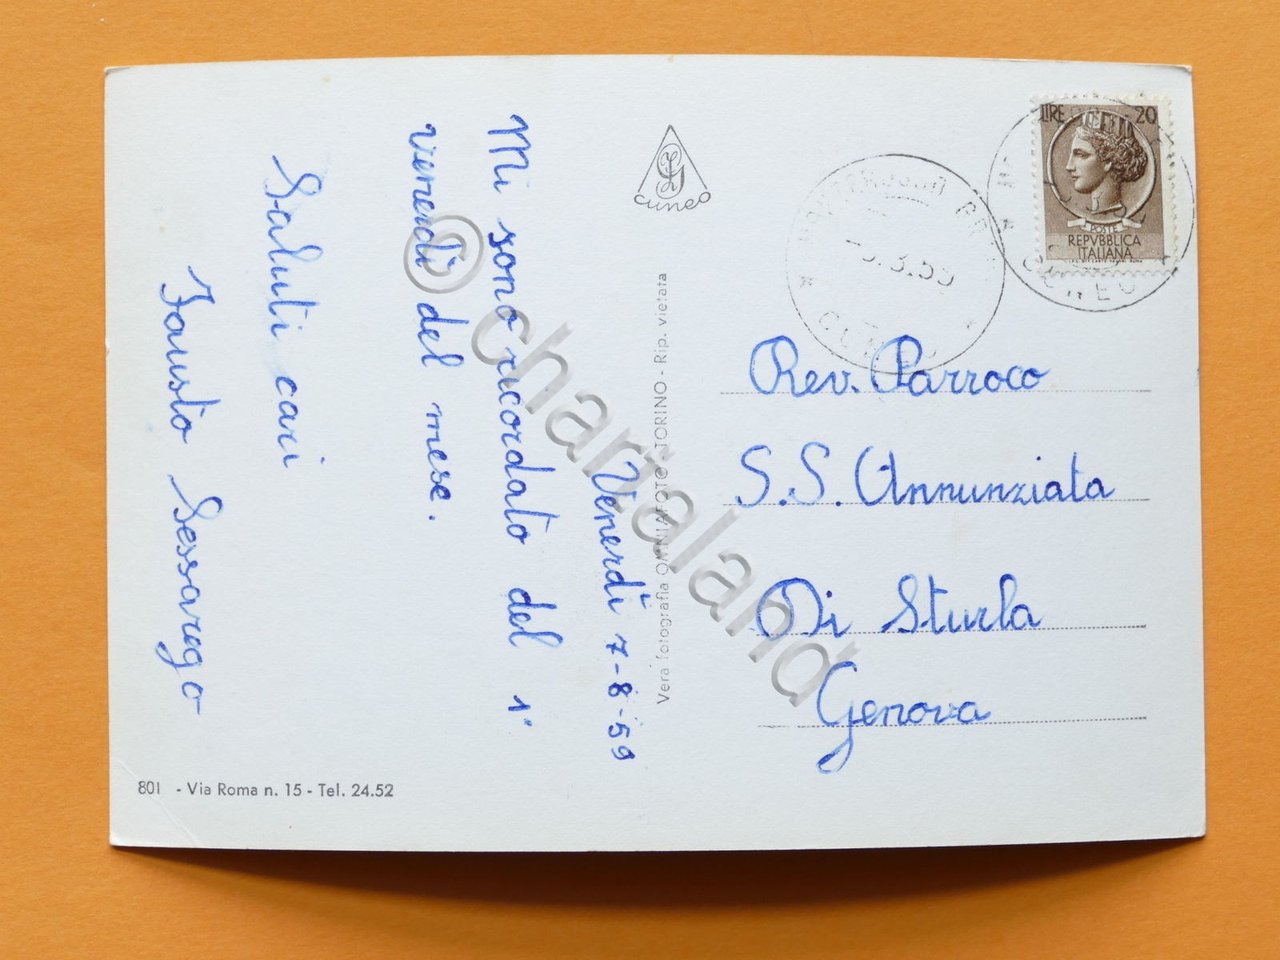 Venerdì 7-8-59
Mi sono ricordato del 1°
venerdì del mese.
Saluti cari
Fausto Sessarego
801 - Via Roma n. 15 - Tel. 24.52
cuneo
Vera fotografia OMNIAFOTO - TORINO - Rip. vietata
LIRE 20
POSTE
REPVBBLICA
ITALIANA
CUNEO
Rev. Parroco
S.S. Annunziata
Di Sturla
Genova
© chartaland